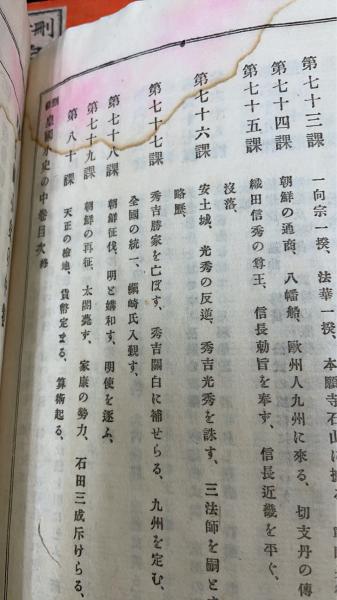 第七十三課　一向宗一揆、法華一揆、本願寺石山に據る
第七十四課　朝鮮の通商、八幡船、歐州人九州に來る、切支丹の傳
第七十五課　織田信秀の尊王、信長勅旨を奉ず、信長近畿を平ぐ、
沒落、
第七十六課　安土城、光秀の反逆、秀吉光秀を誅す、三法師を嗣とす
略歷、
第七十七課　秀吉勝家を亡ぼす、秀吉關白に補せらる、九州を定む、
全國の統一、蠣崎氏入覲す、
第七十八課　朝鮮征伐、明と媾和す、明使を逐ふ、
第七十九課　朝鮮の再征、太閤薨ず、家康の勢力、石田三成斥けらる、
第八十課　天正の檢地、貨幣定まる、算術起る、
皇國小史の中卷目次終